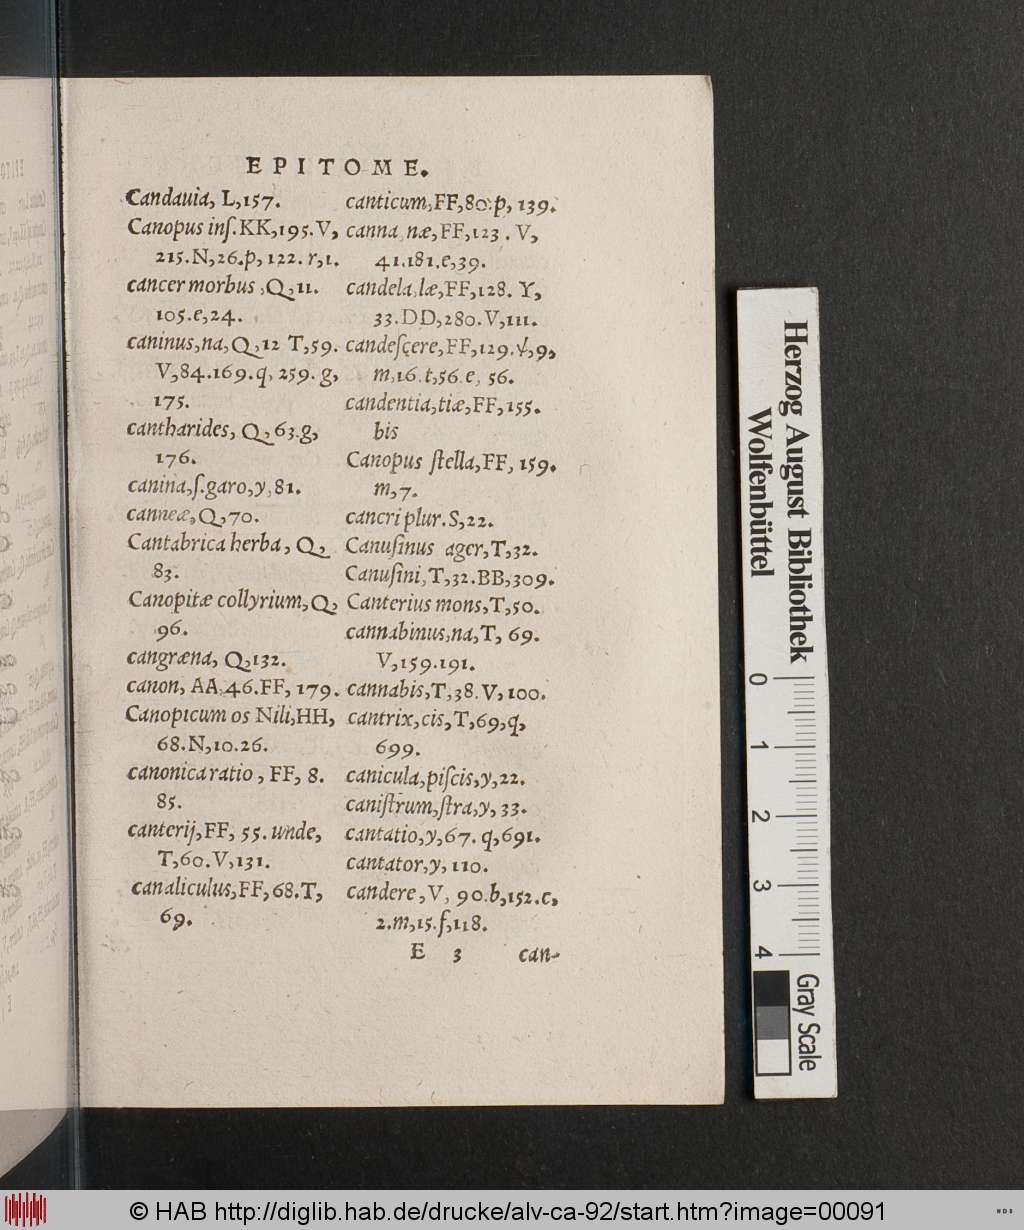 EPITOME.
Candauia, L,157.
Canopus inſ.KK,195.V,
215.N,26.p,122.r,1.
cancer morbus,Q,11.
105.e,24.
caninus,na,Q,12 T,59.
V,84.169.q,259.g,
175.
cantharides, Q,63.g,
176.
canina,ſ.garo,y,81.
canneæ,Q,70.
Cantabrica herba, Q,
83.
Canopitæ collyrium,Q,
96.
cangræna, Q,132.
canon, AA,46.FF, 179.
Canopicum os Nili,HH,
68.N,10.26.
canonica ratio, FF, 8.
85.
canterij,FF, 55. unde,
T,60.V,131.
canaliculus,FF,68.T,
69.
canticum,FF,80.p, 139.
canna,næ,FF,123. V,
41.181.e,39.
candela,læ,FF,128. Y,
33.DD,280.V,111.
candeſcere,FF,129.Ψ,9,
m,16.t,56.e, 56.
candentia,tiæ,FF,155.
bis
Canopus ſtella,FF, 159.
m,7.
cancri plur.S,22.
Canuſinus ager,T,32.
Canuſini,T,32.BB,309.
Canterius mons,T,50.
cannabinus,na,T, 69.
V,159.191.
cannabis,T,38.V,100.
cantrix,cis,T,69,q,
699.
canicula,piſcis,y,22.
caniſtrum,ſtra,y,33.
cantatio,y,67.q,691.
cantator,y,110.
candere,V, 90.b,152.c,
2.m,15.f,118.
E 3 can-
Herzog August Bibliothek
Wolfenbüttel
0 1 2 3 4
Gray Scale
© HAB http://diglib.hab.de/drucke/alv-ca-92/start.htm?image=00091
WDB